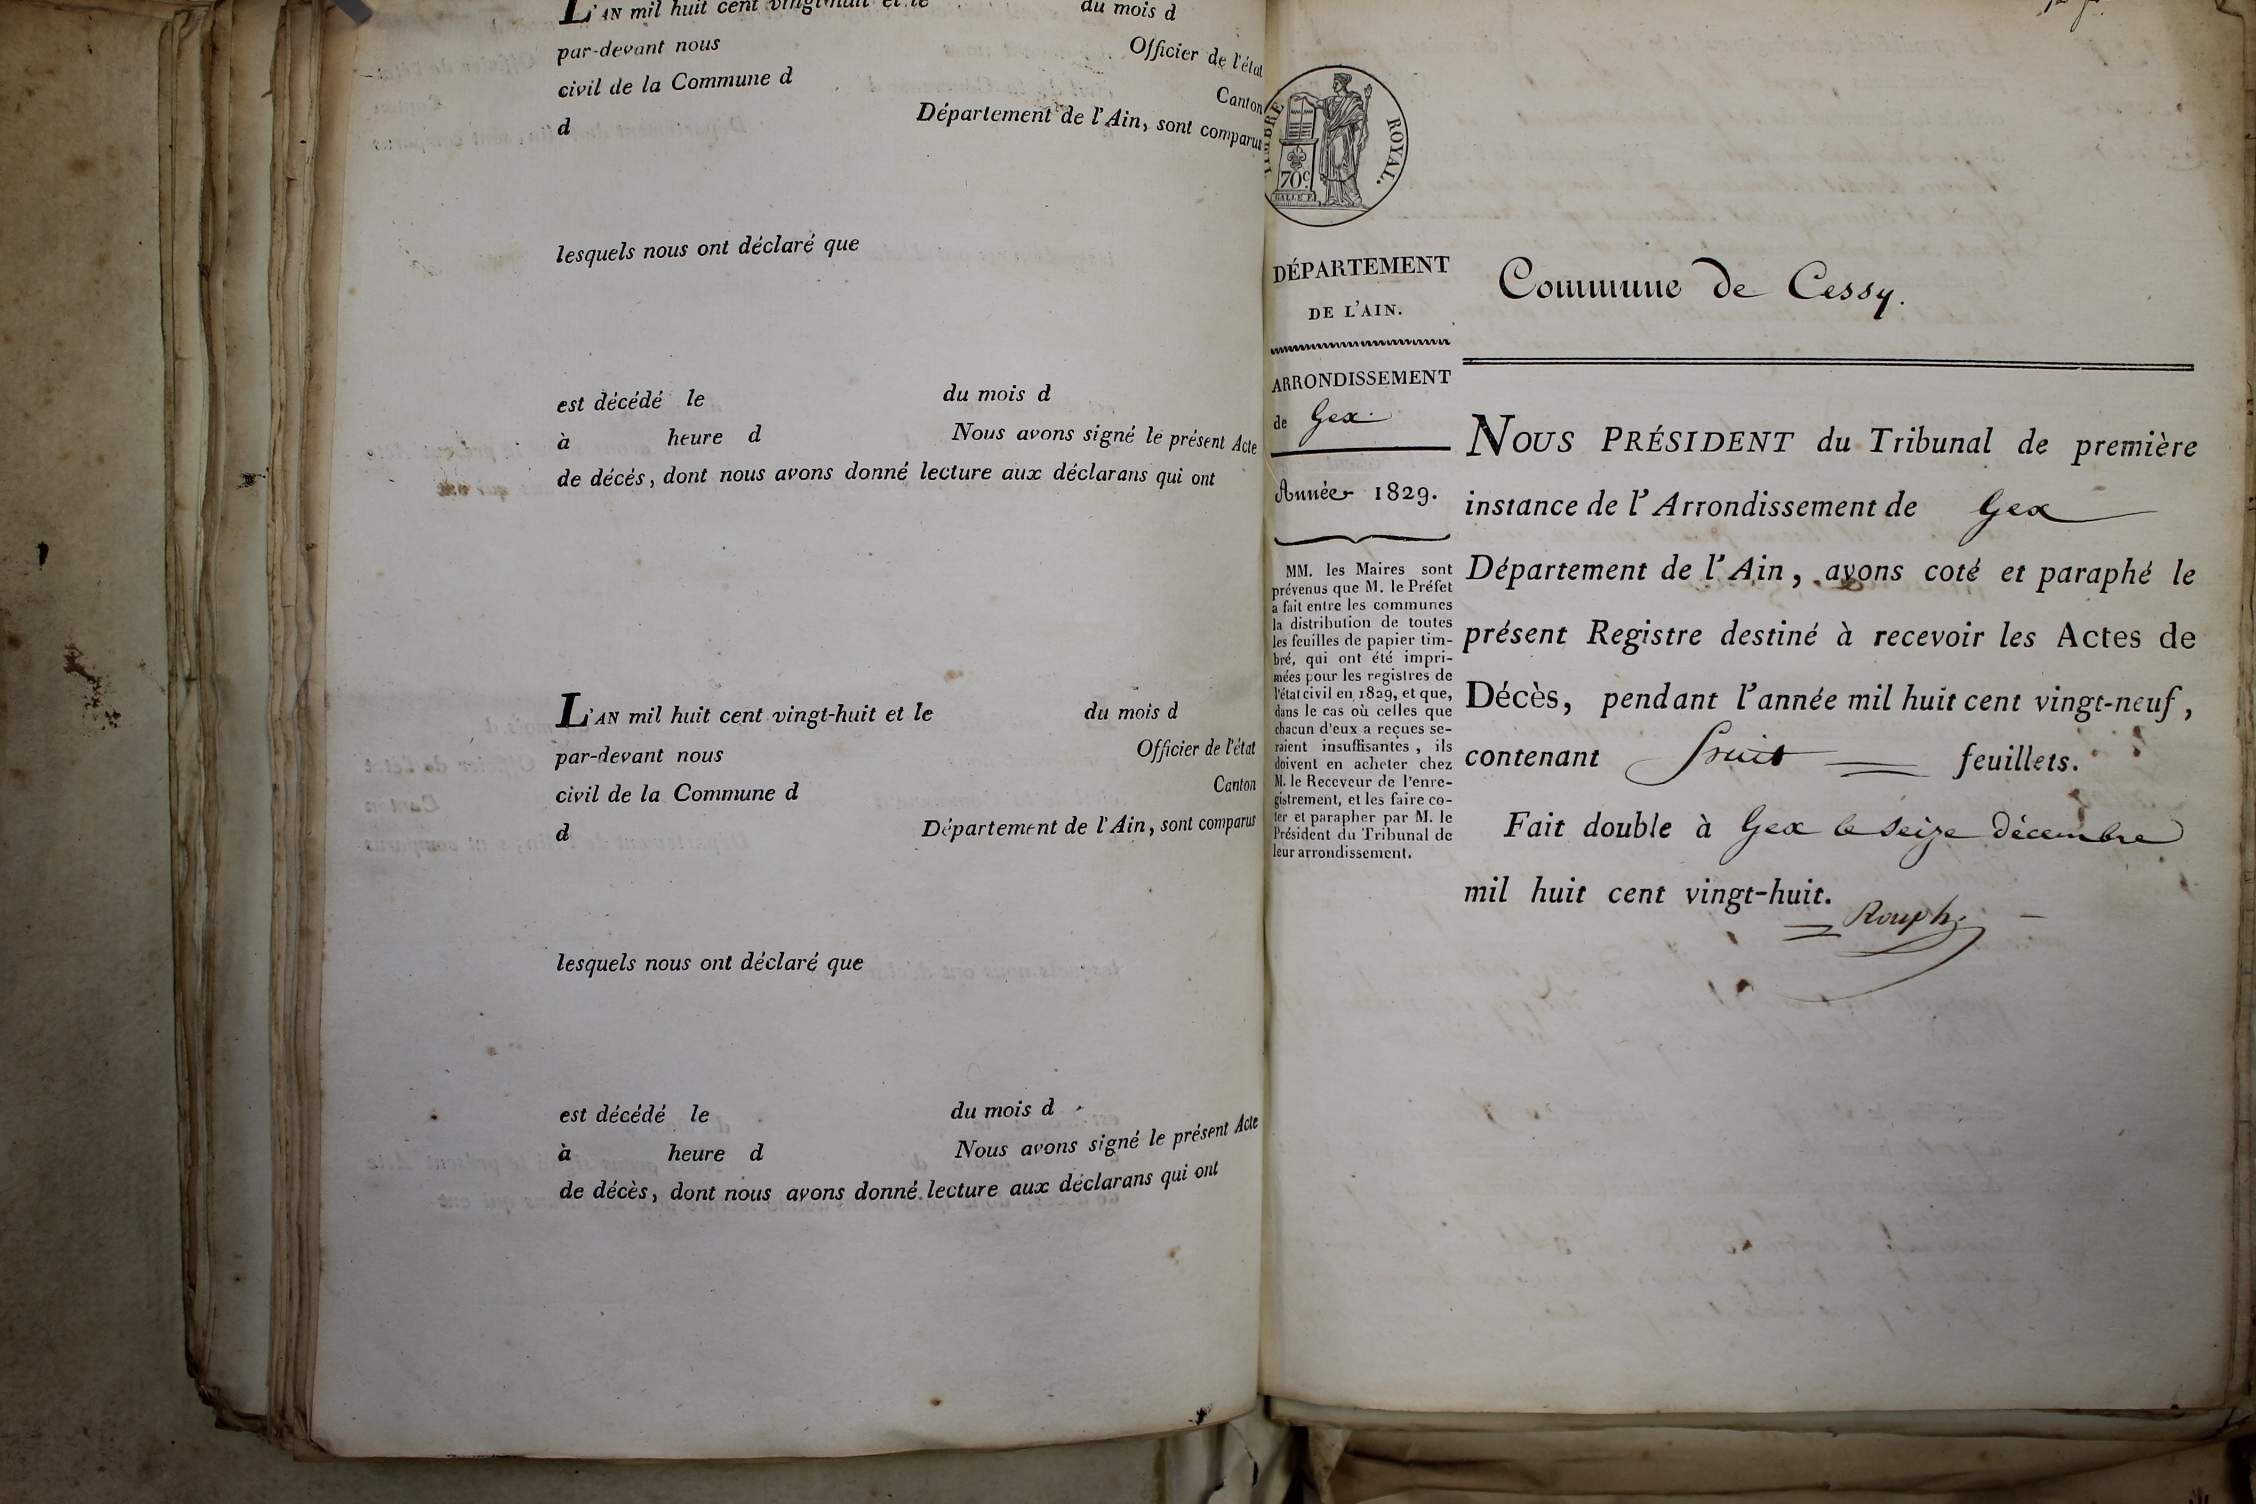 L'AN mil huit cent vingt-huit et le du mois d
par-devant nous Officier de l'état
civil de la Commune d Canton
d Département de l'Ain, sont comparus
lesquels nous ont déclaré que
est décédé le du mois d
à heure d Nous avons signé le présent Acte
de décés, dont nous avons donné lecture aux déclarans qui ont
L'AN mil huit cent vingt-huit et le du mois d
par-devant nous Officier de l'état
civil de la Commune d Canton
d Département de l'Ain, sont comparus
lesquels nous ont déclaré que
est décédé le du mois d
à heure d Nous avons signé le présent Acte
de décès, dont nous avons donné lecture aux déclarans qui ont
TIMBRE ROYAL.
70c.
GALLE F.
DÉPARTEMENT
DE L'AIN.
ARRONDISSEMENT
de Gex.
Année 1829.
MM. les Maires sont
prévenus que M. le Préfet
a fait entre les communes
la distribution de toutes
les feuilles de papier tim-
bré, qui ont été impri-
mées pour les registres de
l'état civil en 1829, et que,
dans le cas où celles que
chacun d'eux a reçues se-
raient insuffisantes, ils
doivent en acheter chez
M. le Receveur de l'enre-
gistrement, et les faire co-
ter et parapher par M. le
Président du Tribunal de
leur arrondissement.
Commune de Cessy.
NOUS PRÉSIDENT du Tribunal de première
instance de l'Arrondissement de Gex
Département de l'Ain, avons coté et paraphé le
présent Registre destiné à recevoir les Actes de
Décès, pendant l'année mil huit cent vingt-neuf,
contenant huit feuillets.
Fait double à Gex le seize décembre
mil huit cent vingt-huit.
Rouph